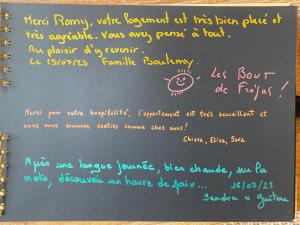 Merci Romy, votre logement est très bien placé et
très agréable. Vous avez pensé à tout.
Au plaisir d'y revenir.
Le 15/07/23 Famille Boutemy.
Les BOUT
de Fréjus!
Merci pour votre hospitalité, l'appartement est très accueillant et
nous nous sommes senties comme chez nous!
Chiara, Elisa, Sara
Après une longue journée, bien chaude, sur la
moto, découvrir un havre de paix...
16/07/23
Sandra